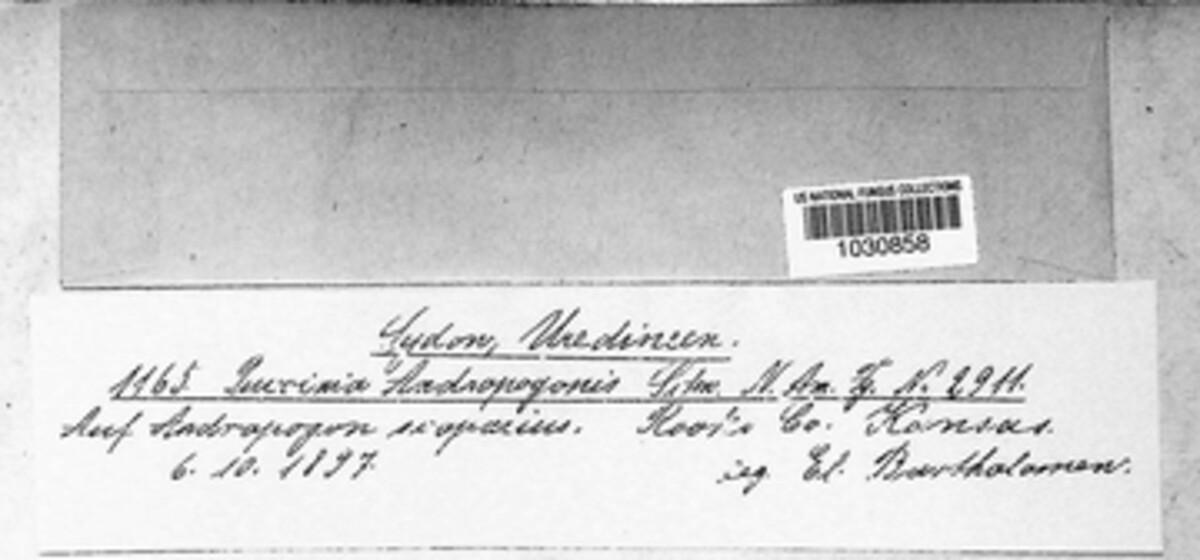 US NATIONAL FUNGUS COLLECTIONS
1030858
Sydow, Uredineen.
1165 Puccinia Andropogonis Schw. N. Am. F. N. 2911.
Auf Andropogon scoparius. Rooks Co. Kansas.
6. 10. 1897. leg. El. Bartholomew.